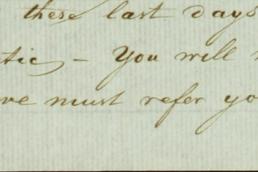 these last days
tic, — You will
ve must refer yo